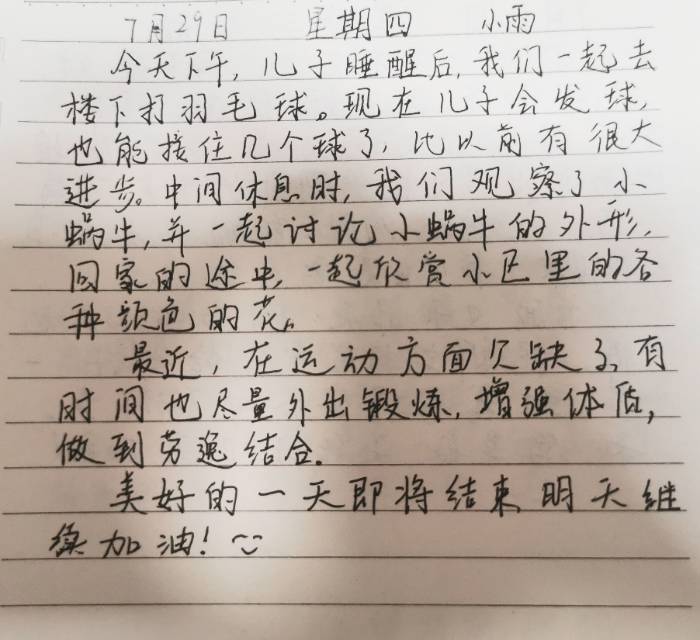 7月29日 星期四 小雨
今天下午,儿子睡醒后,我们一起去
楼下打羽毛球。现在儿子会发球,
也能接住几个球了,比以前有很大
进步。中间休息时,我们观察了小
蜗牛,并一起讨论小蜗牛的外形,
回家的途中,一起欣赏小区里的各
种颜色的花。
最近,在运动方面欠缺了,有
时间也尽量外出锻炼,增强体质,
做到劳逸结合。
美好的一天即将结束 明天继
续加油!